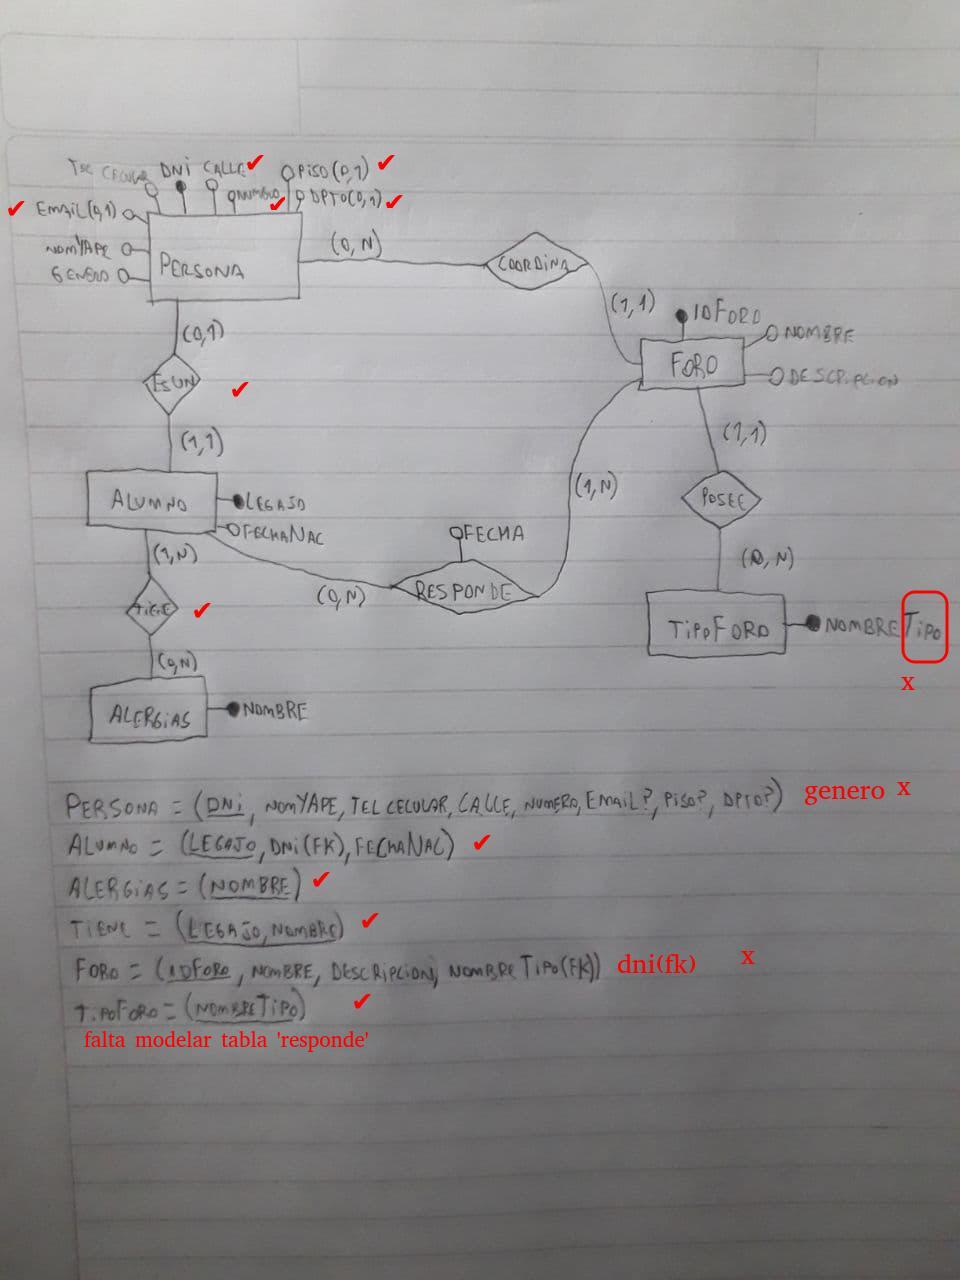 TEL CELULAR DNI CALLE ✔ PISO(0,1) ✔
NUMERO ✔ DPTO(0,1) ✔
✔ EMAIL(0,1)
NOMYAPE
GENERO
PERSONA
(0,N)
COORDINA
(1,1)
IDFORO
NOMBRE
FORO
DESCRIPCION
(0,1)
ESUN ✔
(1,1)
(1,1)
ALUMNO
LEGAJO
FECHANAC
(1,N)
POSEE
(1,N)
FECHA
(0,N)
RESPONDE
(0,N)
TIENE ✔
TIPOFORO
NOMBRETIPO
x
(0,N)
ALERGIAS
NOMBRE
PERSONA = (DNI, NOMYAPE, TEL CELULAR, CALLE, NUMERO, EMAIL?, PISO?, DPTO?) genero x
ALUMNO = (LEGAJO, DNI(FK), FECHANAC) ✔
ALERGIAS = (NOMBRE) ✔
TIENE = (LEGAJO, NOMBRE) ✔
FORO = (IDFORO, NOMBRE, DESCRIPCION, NOMBRETIPO(FK)) dni(fk) x
TIPOFORO = (NOMBRETIPO) ✔
falta modelar tabla 'responde'